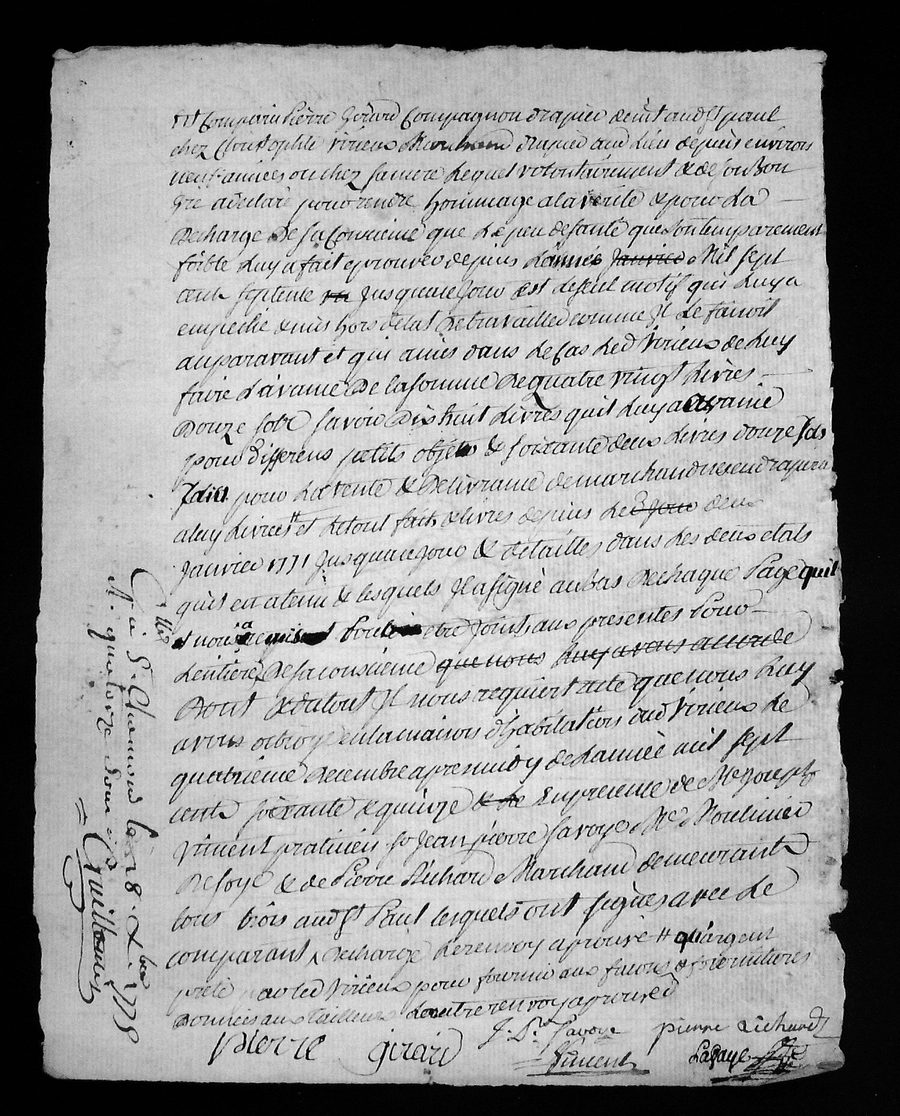 est Comparu Pierre Girard Compagnon drapier demt audt St paul
chez Christophle Virieux Marchand drapier aud Lieu depuis environ
neuf années ou chez sa mere Lequel volontairement & de Son Bon
Gré a declaré pour rendre hommage a la verité & pour La
decharge De sa Consience que Le peu de santé que Son temparement
foible Luy a fait eprouver depuis Lannée Janvier Mil Sept
cent septente Jusqua ce Jour est Le seul motif qui Luy a
empeché & mis hors detat De travailler comme Il Le faisoit
auparavant et qui a mis dans Le Cas Led Virieux de Luy
faire Lavance De la somme De quatre vingt Livres
Douze sols savoir Dix huit Livres quil Luy a avancé
pour differens petits objets & soixante deux Livres douze sols
pour La vente & Delivrance de marchandises en draperie
a luy Livrée # et Le tout fait & Livres depuis Le deux
Janvier 1771 Jusqua ce Jour & detaillés dans Les deux etats
quil en a tenu & Lesquels Il a signé au Bas De chaque Page quil
nous a requis Pour etre Joints aux presentes Pour
Lentiere De sa consience que nous Luy avons accordé
Dont & du tout Il nous requiert acte que nous Luy
avons octroyé en la maison d'habitation dud Virieux Le
quatrieme Decembre apres midy de Lannée mil sept
cent soixante & quinze & Le En presence de Me Joseph
Vincent praticien sr Jean pierre Savoye Md Moulinier
De soye & de Pierre Richard Marchand demeurants
tous trois audt St Paul Lesquels ont signés avec Le
comparant decharge Le renvoy aprouvé # qu'argent
preté par led Virieux pour fournir aux façons & fournitures
Données aux tailleurs Lautre renvoy aprouvé
pierre girard
J. Pre Savoye
pierre Richard
Vincent
Lafaye
Cllé à St Chamond le 18 Xbre 1775
R. quatorze sous
Guillomet